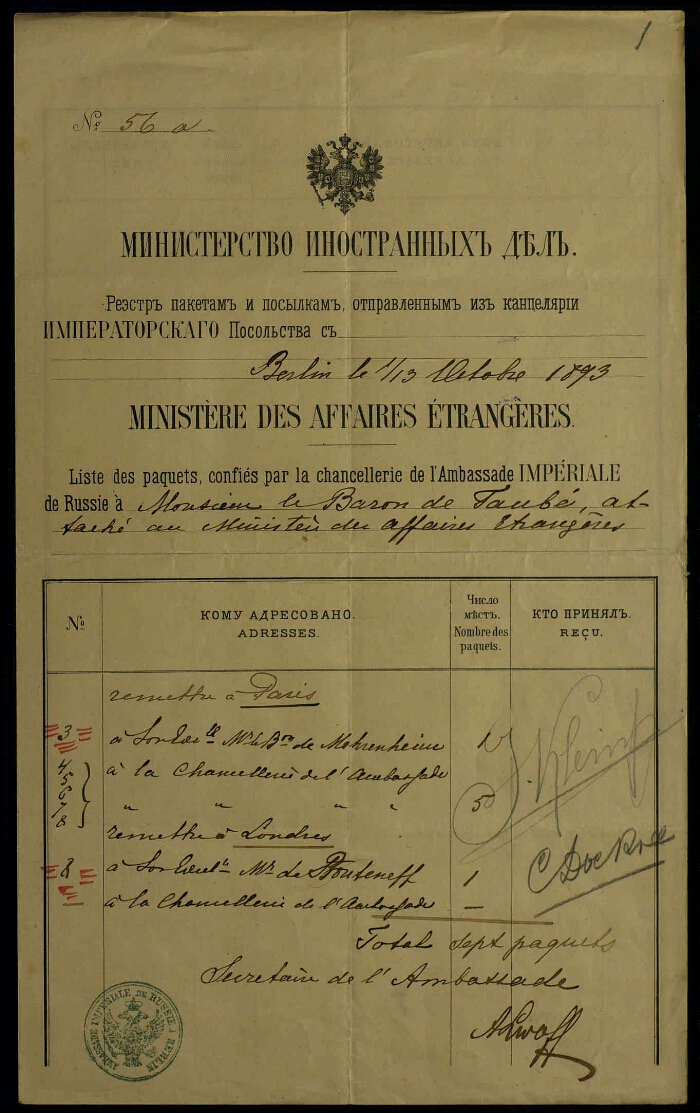 1
№ 56 a
МИНИСТЕРСТВО ИНОСТРАННЫХЪ ДѢЛЪ.
Реэстръ пакетамъ и посылкамъ, отправленнымъ изъ канцеляріи
ИМПЕРАТОРСКАГО Посольства съ
Berlin le 1/13 Octobre 1893
MINISTÈRE DES AFFAIRES ÉTRANGÈRES.
Liste des paquets, confiés par la chancellerie de l'Ambassade IMPÉRIALE
de Russie à Monsieur le Baron de Taube, at-
taché au Ministère des affaires Etrangères
№ КОМУ АДРЕСОВАНО. ADRESSES. Число мѣстъ. Nombre des paquets. КТО ПРИНЯЛЪ. REÇU.
remettre à Paris
3 à Son Exc. Mr. le Bn de Mohrenheim 1
4 5 6 7 8 à la Chancellerie de l'Ambassade 5
" " " "
J. Klein
remettre à Londres
8 à Son Exc. Mr. de Bouteneff 1
à la Chancellerie de l'Ambassade —
Total sept paquets
Secrétaire de l'Ambassade
ALwoff
AMBASSADE IMPÉRIALE DE RUSSIE À BERLIN